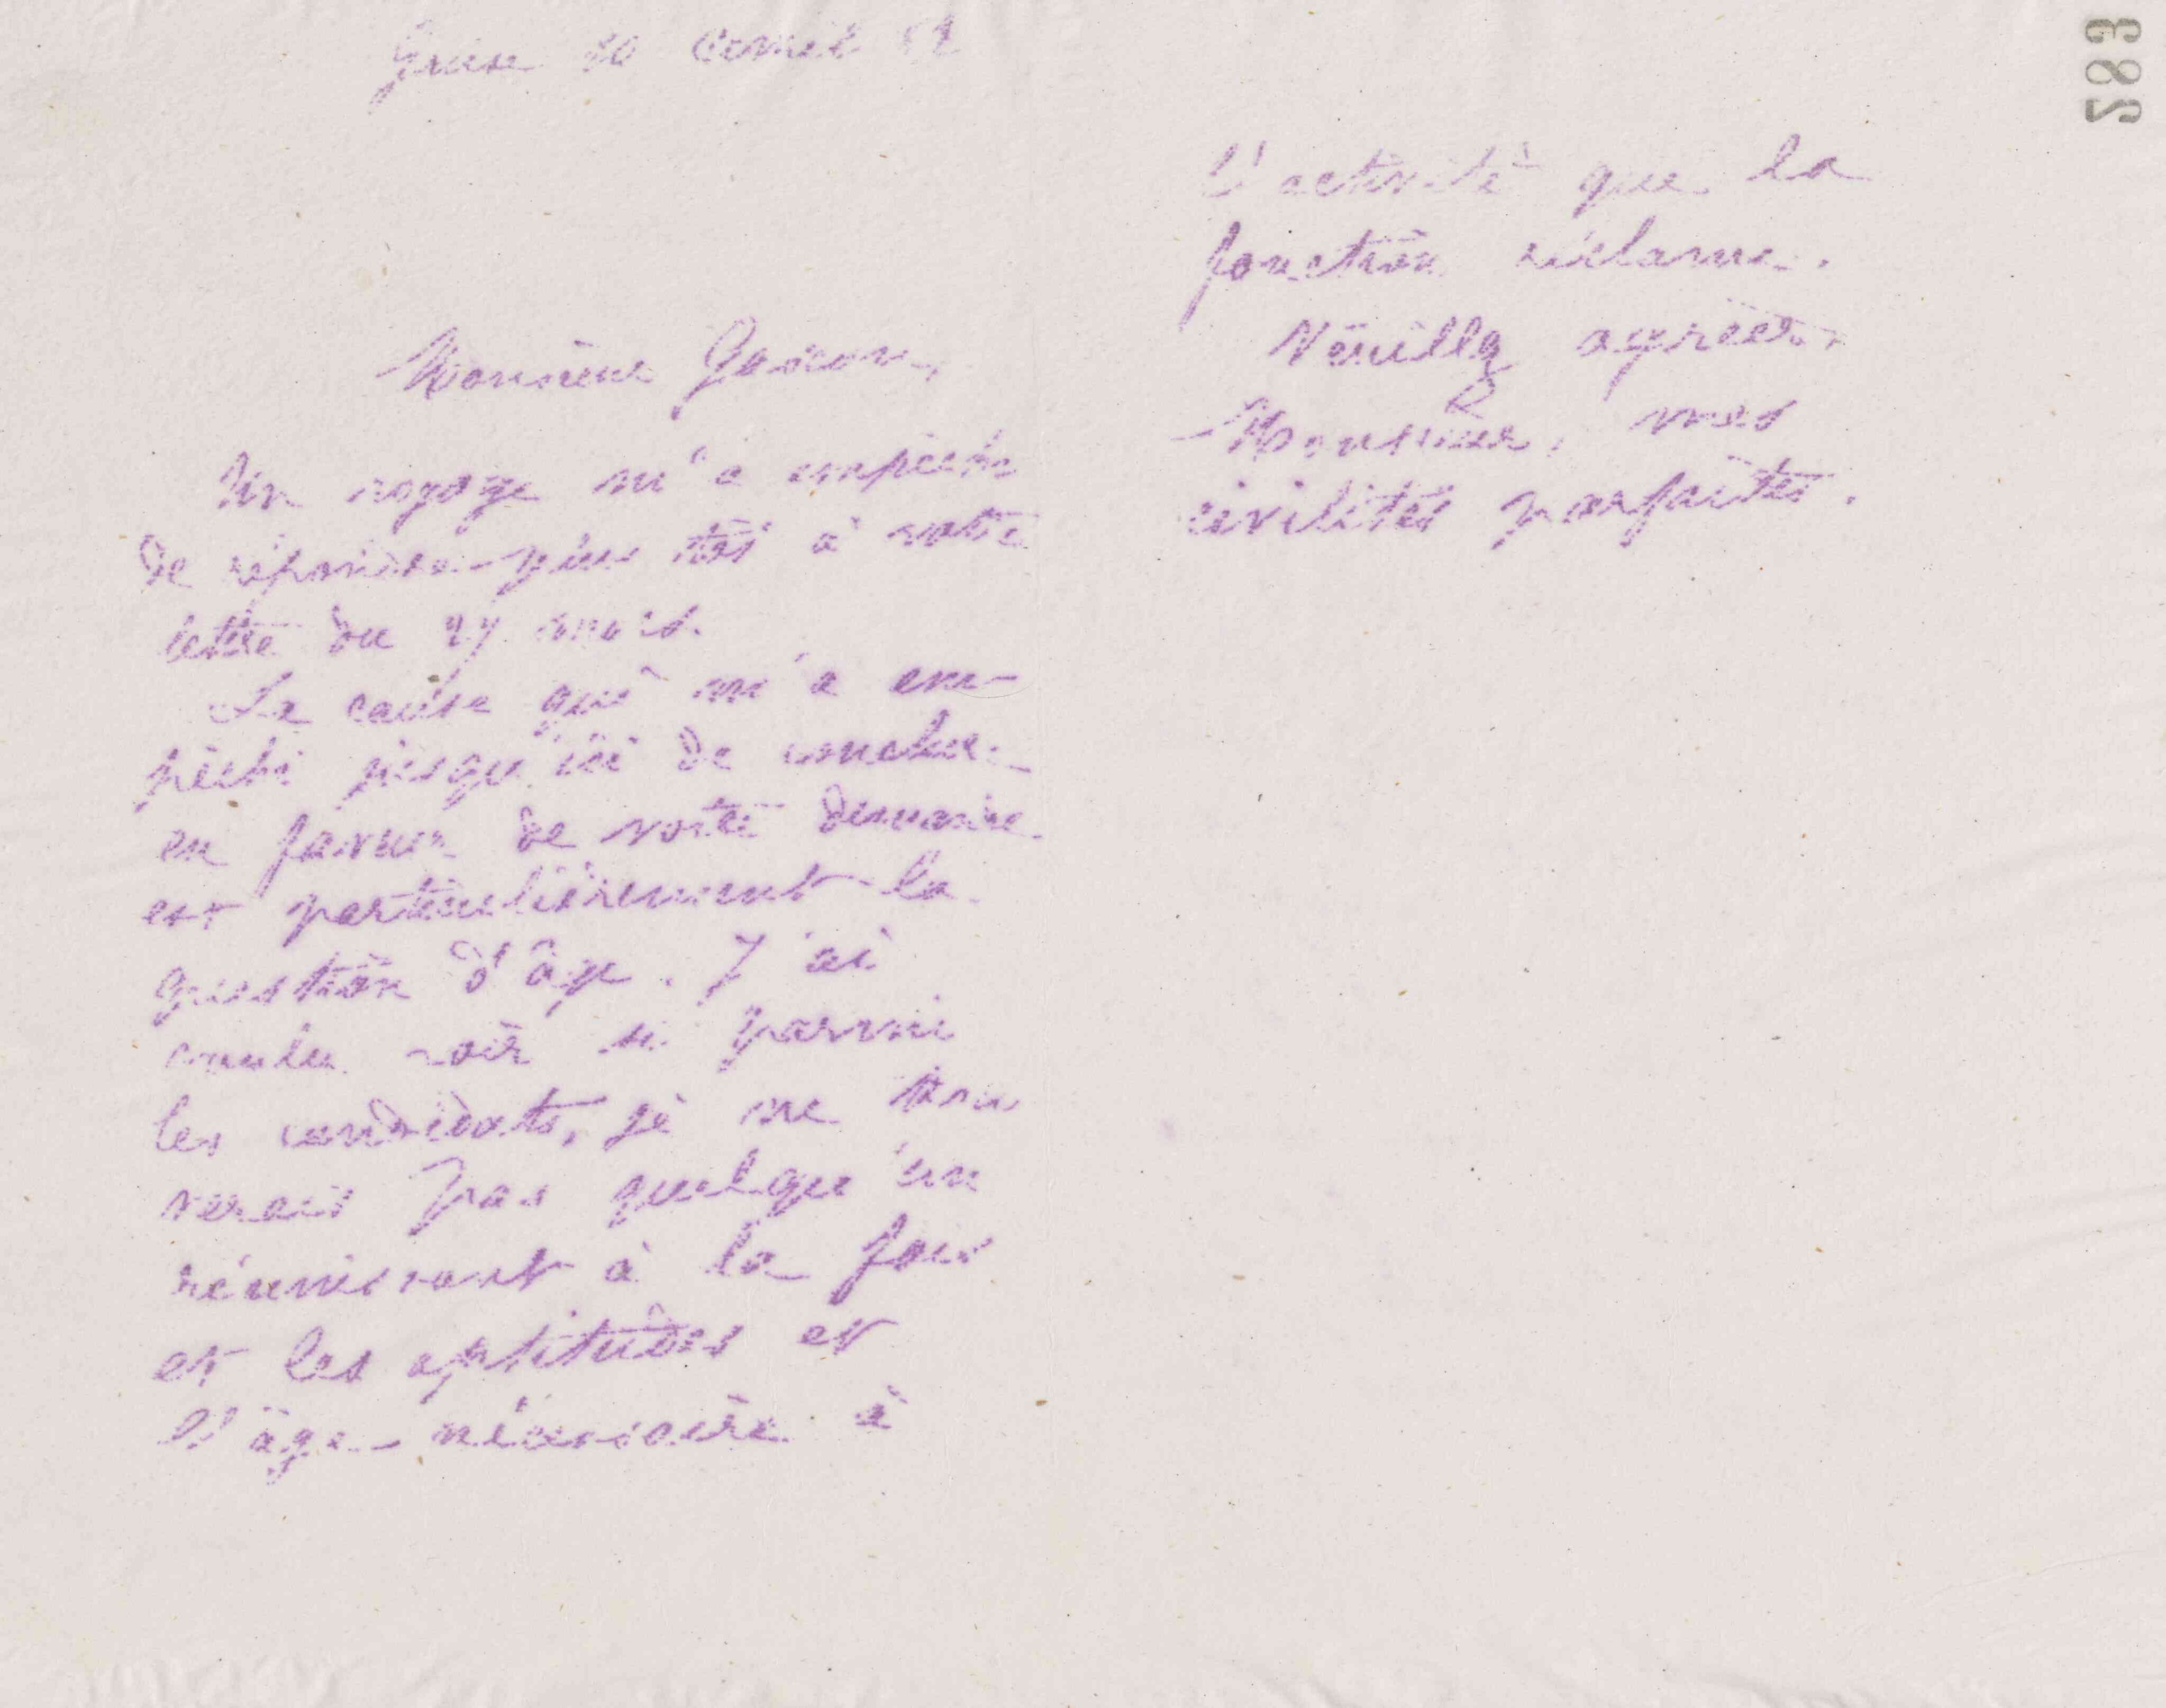 Guise 20 avril 82
Monsieur
Un voyage m'a empêché
de répondre plus tôt à votre
lettre du 27 mars.
La cause qui m'a em-
pêché jusqu'ici de conclure
en faveur de votre demande
est particulièrement la
question d'âge. J'ai
voulu voir si parmi
les candidats, je ne trou
verais pas quelqu'un
réunissant à la fois
et les aptitudes et
l'âge nécessaire à
l'activité que la
fonction réclame.
Veuillez agréer,
Monsieur, mes
civilités parfaites.
283